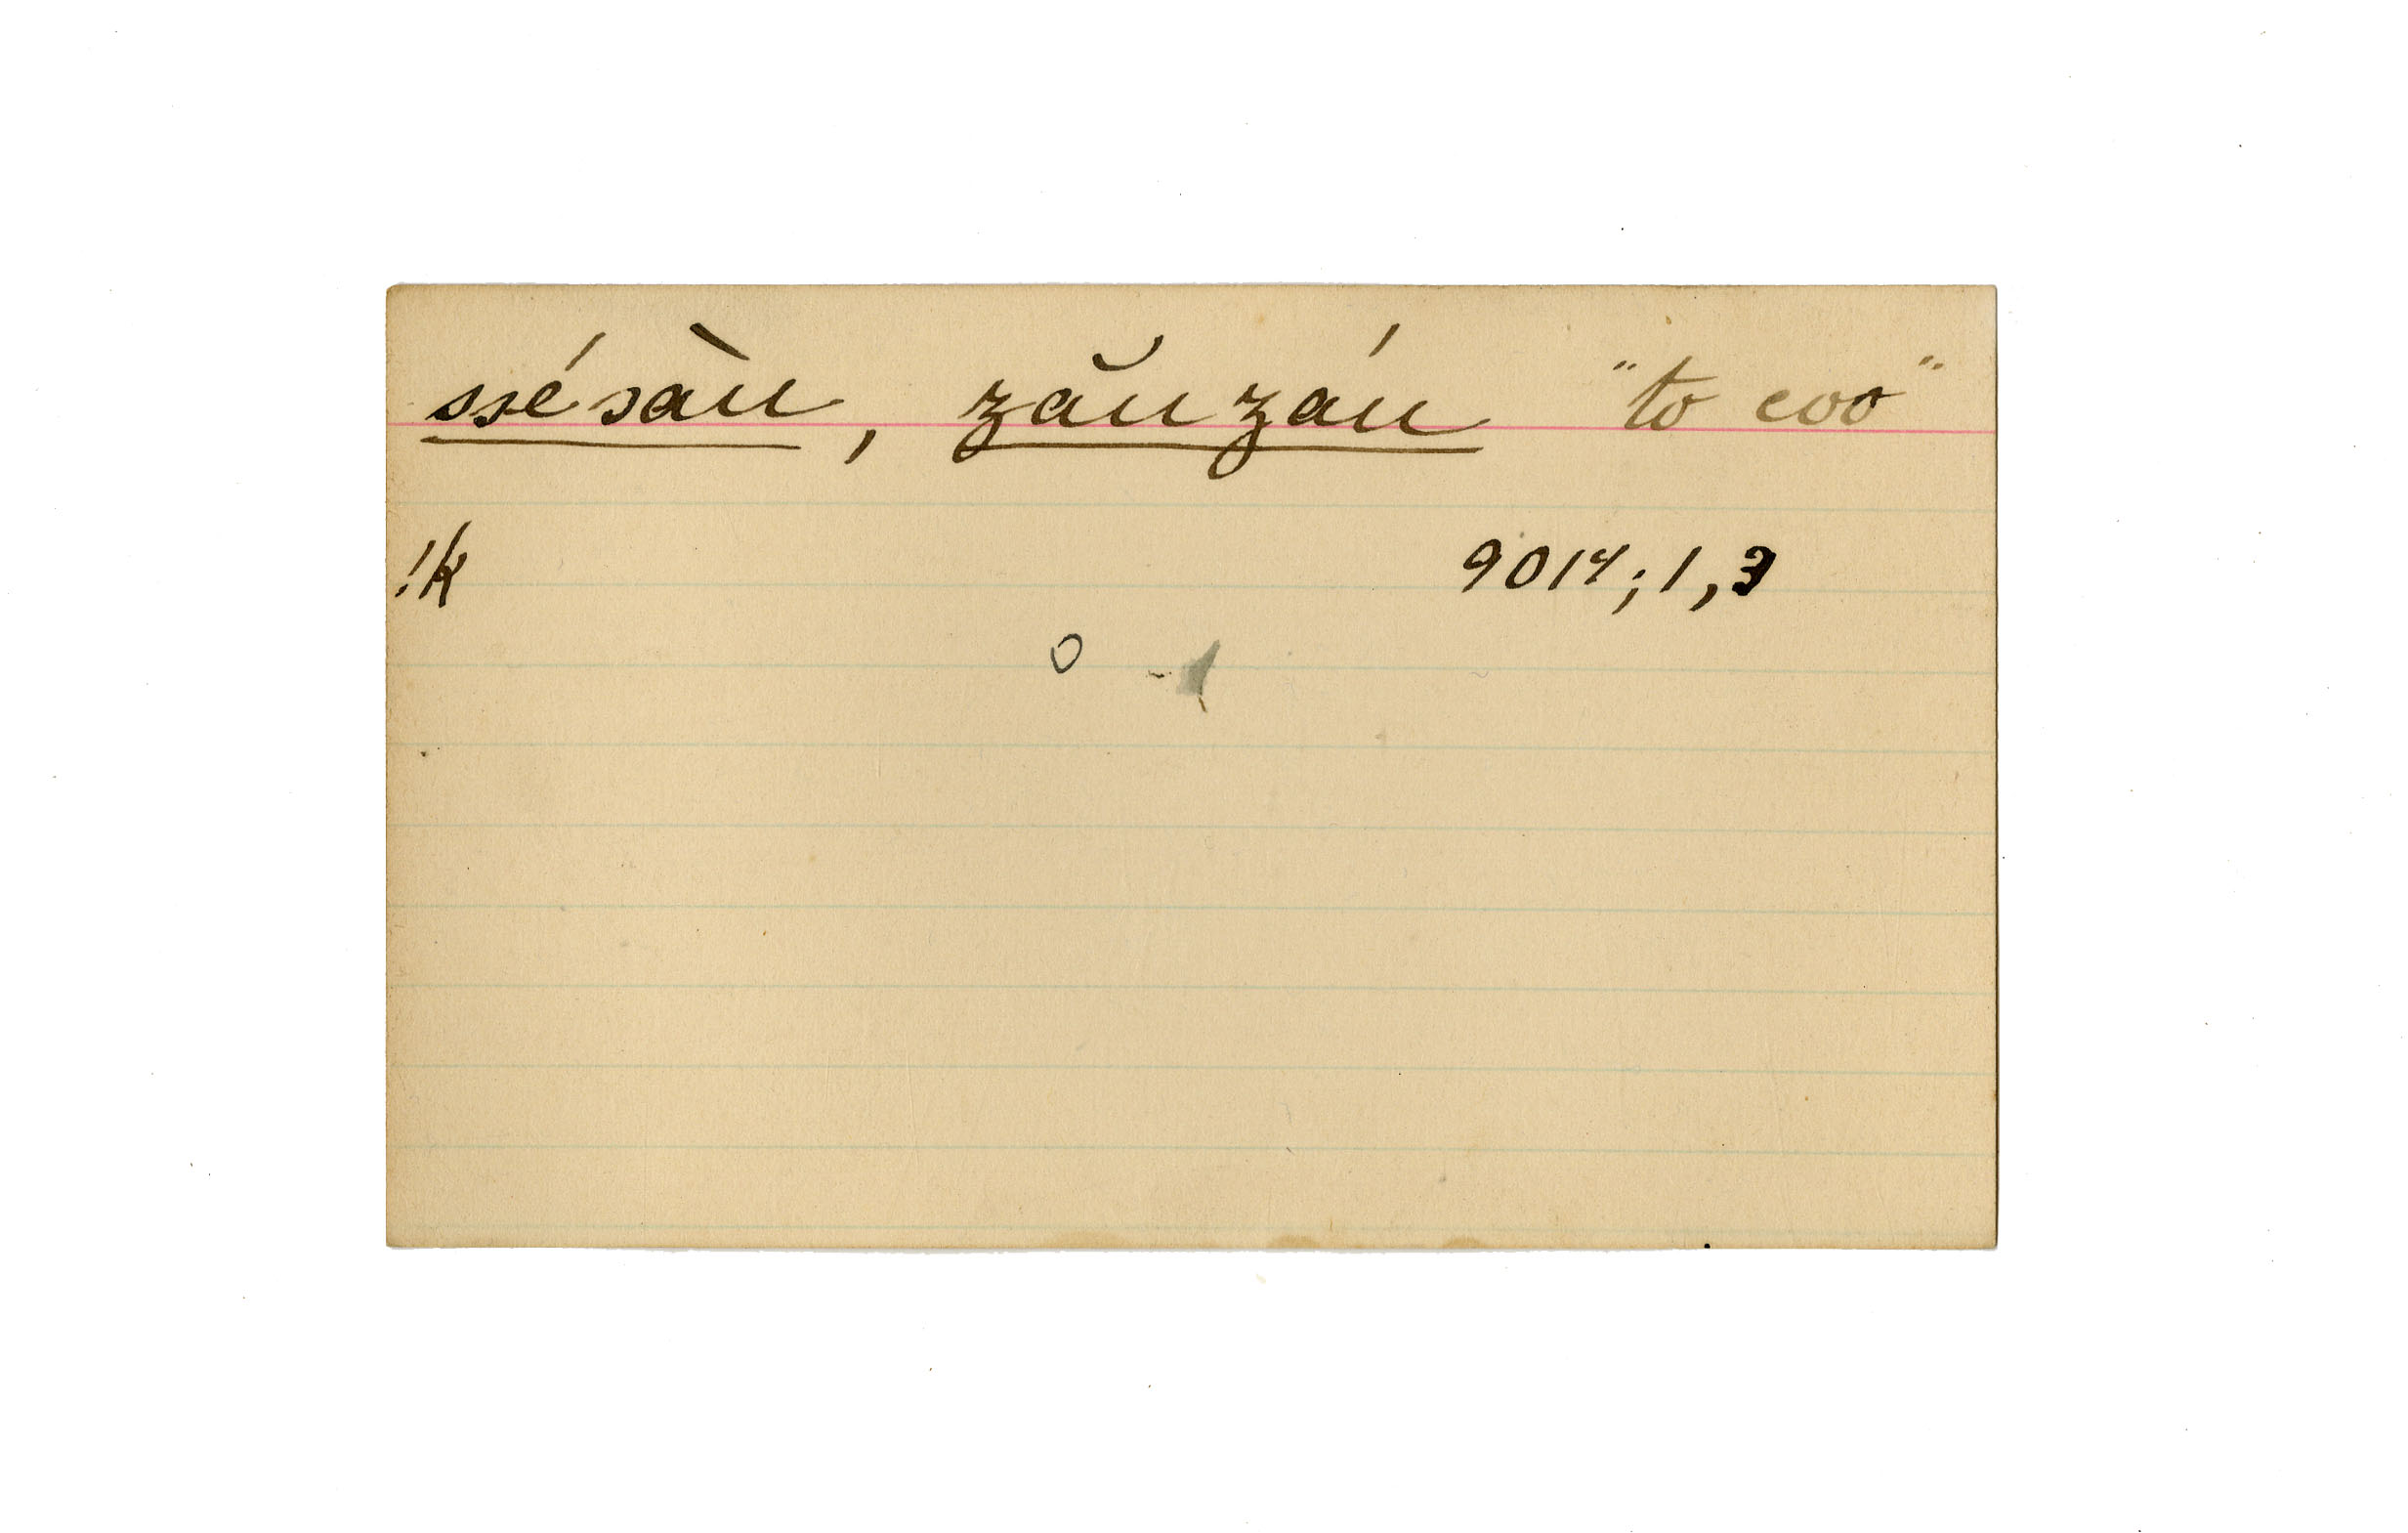 ssésàn, zănzán "to coo"
!k 9014; 1, 3